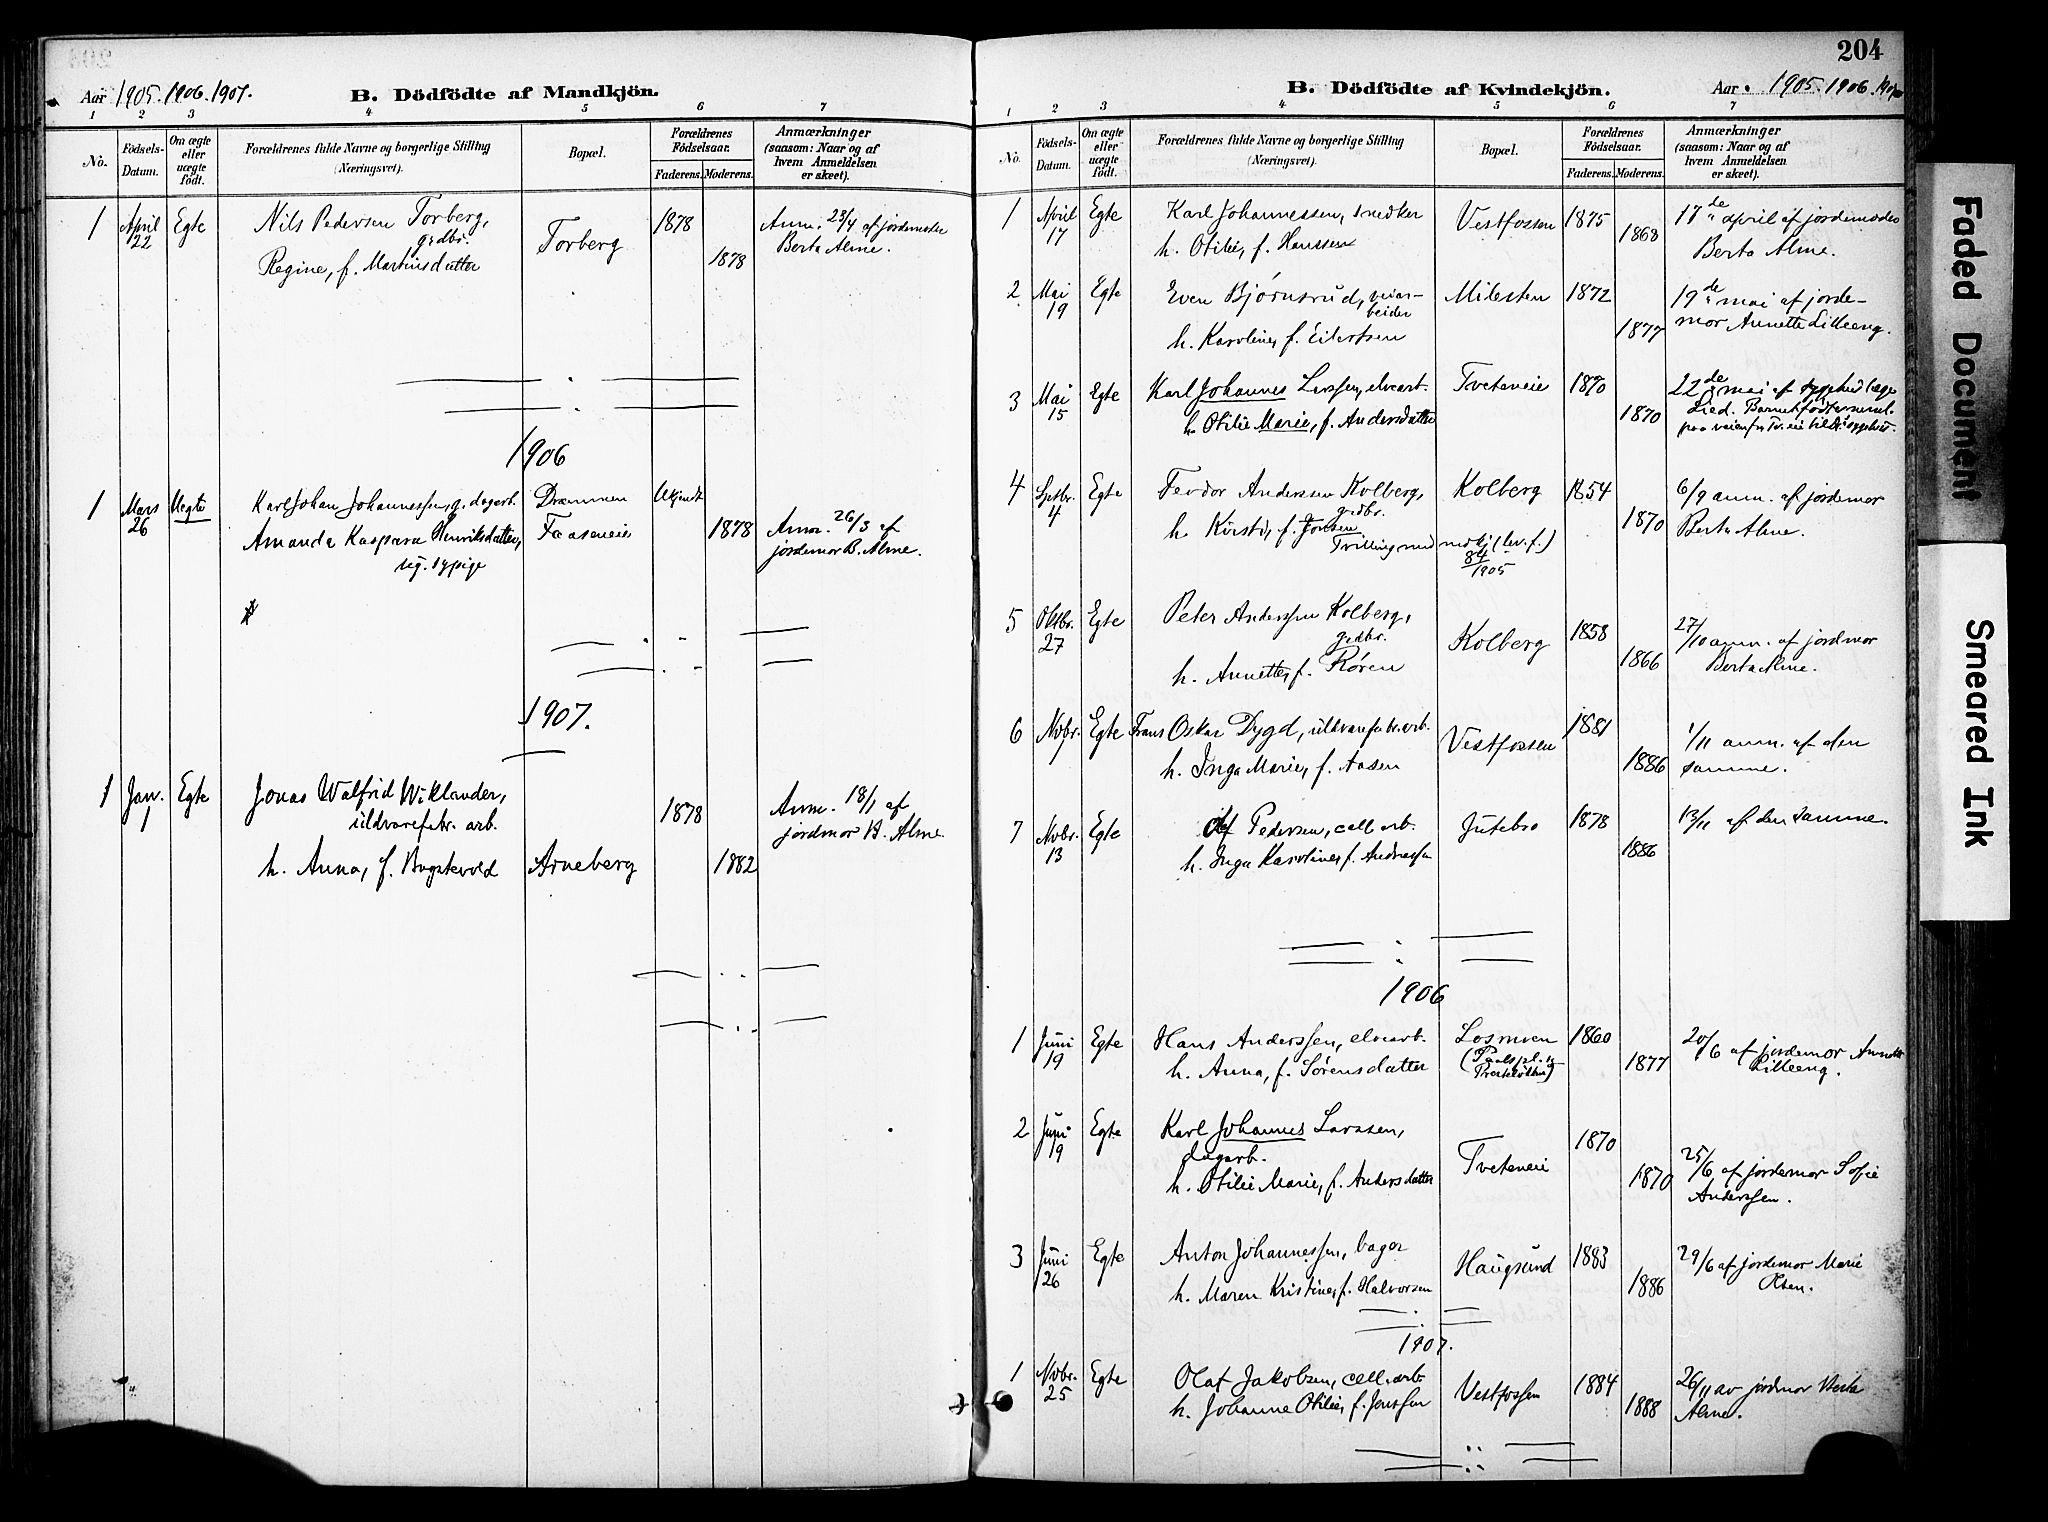 Aar 1905. 1906. 1907. B. Dödfödte af Mandkjön.
1 2 3 4 5 6 7
No. Födsels-Datum. Om ægte eller uægte födt. Forældrenes fulde Navne og borgerlige Stilling (Næringsvei). Bopæl. Forældrenes Födselsaar. Faderens. Moderens. Anmærkninger (saasom: Naar og af hvem Anmeldelsen er skeet).
1 April 22 Egte Nils Pedersen Torberg, grdbr. Torberg 1878 Anm. 23/4 af jordemoder
Regine, f. Martinsdatter 1878 Berta Alme.
1906
1 Mars 26 Uegte Karl Johan Johannessen, g. dagarb. Drammen Ukjendt
Amanda Kaspara Henriksdatter, Faaseneie 1878 Anm. 26/3 af
ug. sypige jordemor B. Alme.
1907.
1 Jan. 1 Egte Jonas Walfrid Wiklander, 1878 Anm. 18/1 af
uldvarefabr. arb. jordmor B. Alme
h. Anna, f. Bogstevold Arneberg 1882
204
B. Dödfödte af Kvindekjön. Aar 1905. 1906. 1907
1 2 3 4 5 6 7
No. Födsels-Datum. Om ægte eller uægte födt. Forældrenes fulde Navne og borgerlige Stilling (Næringsvei). Bopæl. Forældrenes Födselsaar. Faderens. Moderens. Anmærkninger (saasom: Naar og af hvem Anmeldelsen er skeet).
1 April 17 Egte Karl Johannessen, snedker Vestfossen 1875 17de april af jordemoder
h. Otilie, f. Hanssen 1868 Berta Alme.
2 Mai 19 Egte Even Bjørnsrud, veiarbeider Milesten 1872 19de mai af jorde-
h. Karoline, f. Eilertsen 1877 mor Annette Lilleeng.
3 Mai 15 Egte Karl Johannes Larssen, elvearb. Tveteneie 1870 22de mai af sygehuslæge
h. Otilie Marie, f. Andersdatter 1870 Lied. Barnet født
paa veien fra Tv. eie til sygehuset.
4 Septbr. 4 Egte Feodor Anderssen Kolberg, grdbr. Kolberg 1854 6/9 anm. af jordemor
h. Kirsti, f. Jonsen 1870 Berta Alme.
Tvilling med mdkj (lev. f.)
84/1905
5 Oktbr. 27 Egte Peter Anderssen Kolberg, grdbr. Kolberg 1858 27/10 anm. af jordmor
h. Annette, f. Røren 1866 Berta Alme.
6 Novbr. Egte Frans Oskar Dygd, uldvarefabr. arb. Vestfossen 1881 1/11 anm. af den
h. Inga Marie, f. Aasen 1886 samme.
7 Novbr. 13 Egte Pedersen, cell. arb. Jutebro 1878 13/11 af den samme.
h. Inga Karoline, f. Andreassen 1886
1906
1 Juni 19 Egte Hans Anderssen, elvearb. Losmoen 1860 20/6 af jordemor Annette
h. Anna, f. Sørensdatter 1877 Lilleeng.
2 Juni 19 Egte Karl Johannes Larssen, dagarb. Tveteneie 1870 25/6 af jordemor Sofie
h. Otilie Marie, f. Andersdatter 1870 Anderssen.
3 Juni 26 Egte Anton Johannessen, bager Haugsund 1883 29/6 af jordemor Marie
h. Maren Kristine, f. Halvorsen 1886 Olsen.
1907.
1 Novbr. 25 Egte Olaf Jakobsen, cell. arb. Vestfossen 1884 26/11 av jordmor Berta
h. Johanne Otilie, f. Jonssen 1888 Alme.
Faded Document
Smeared Ink